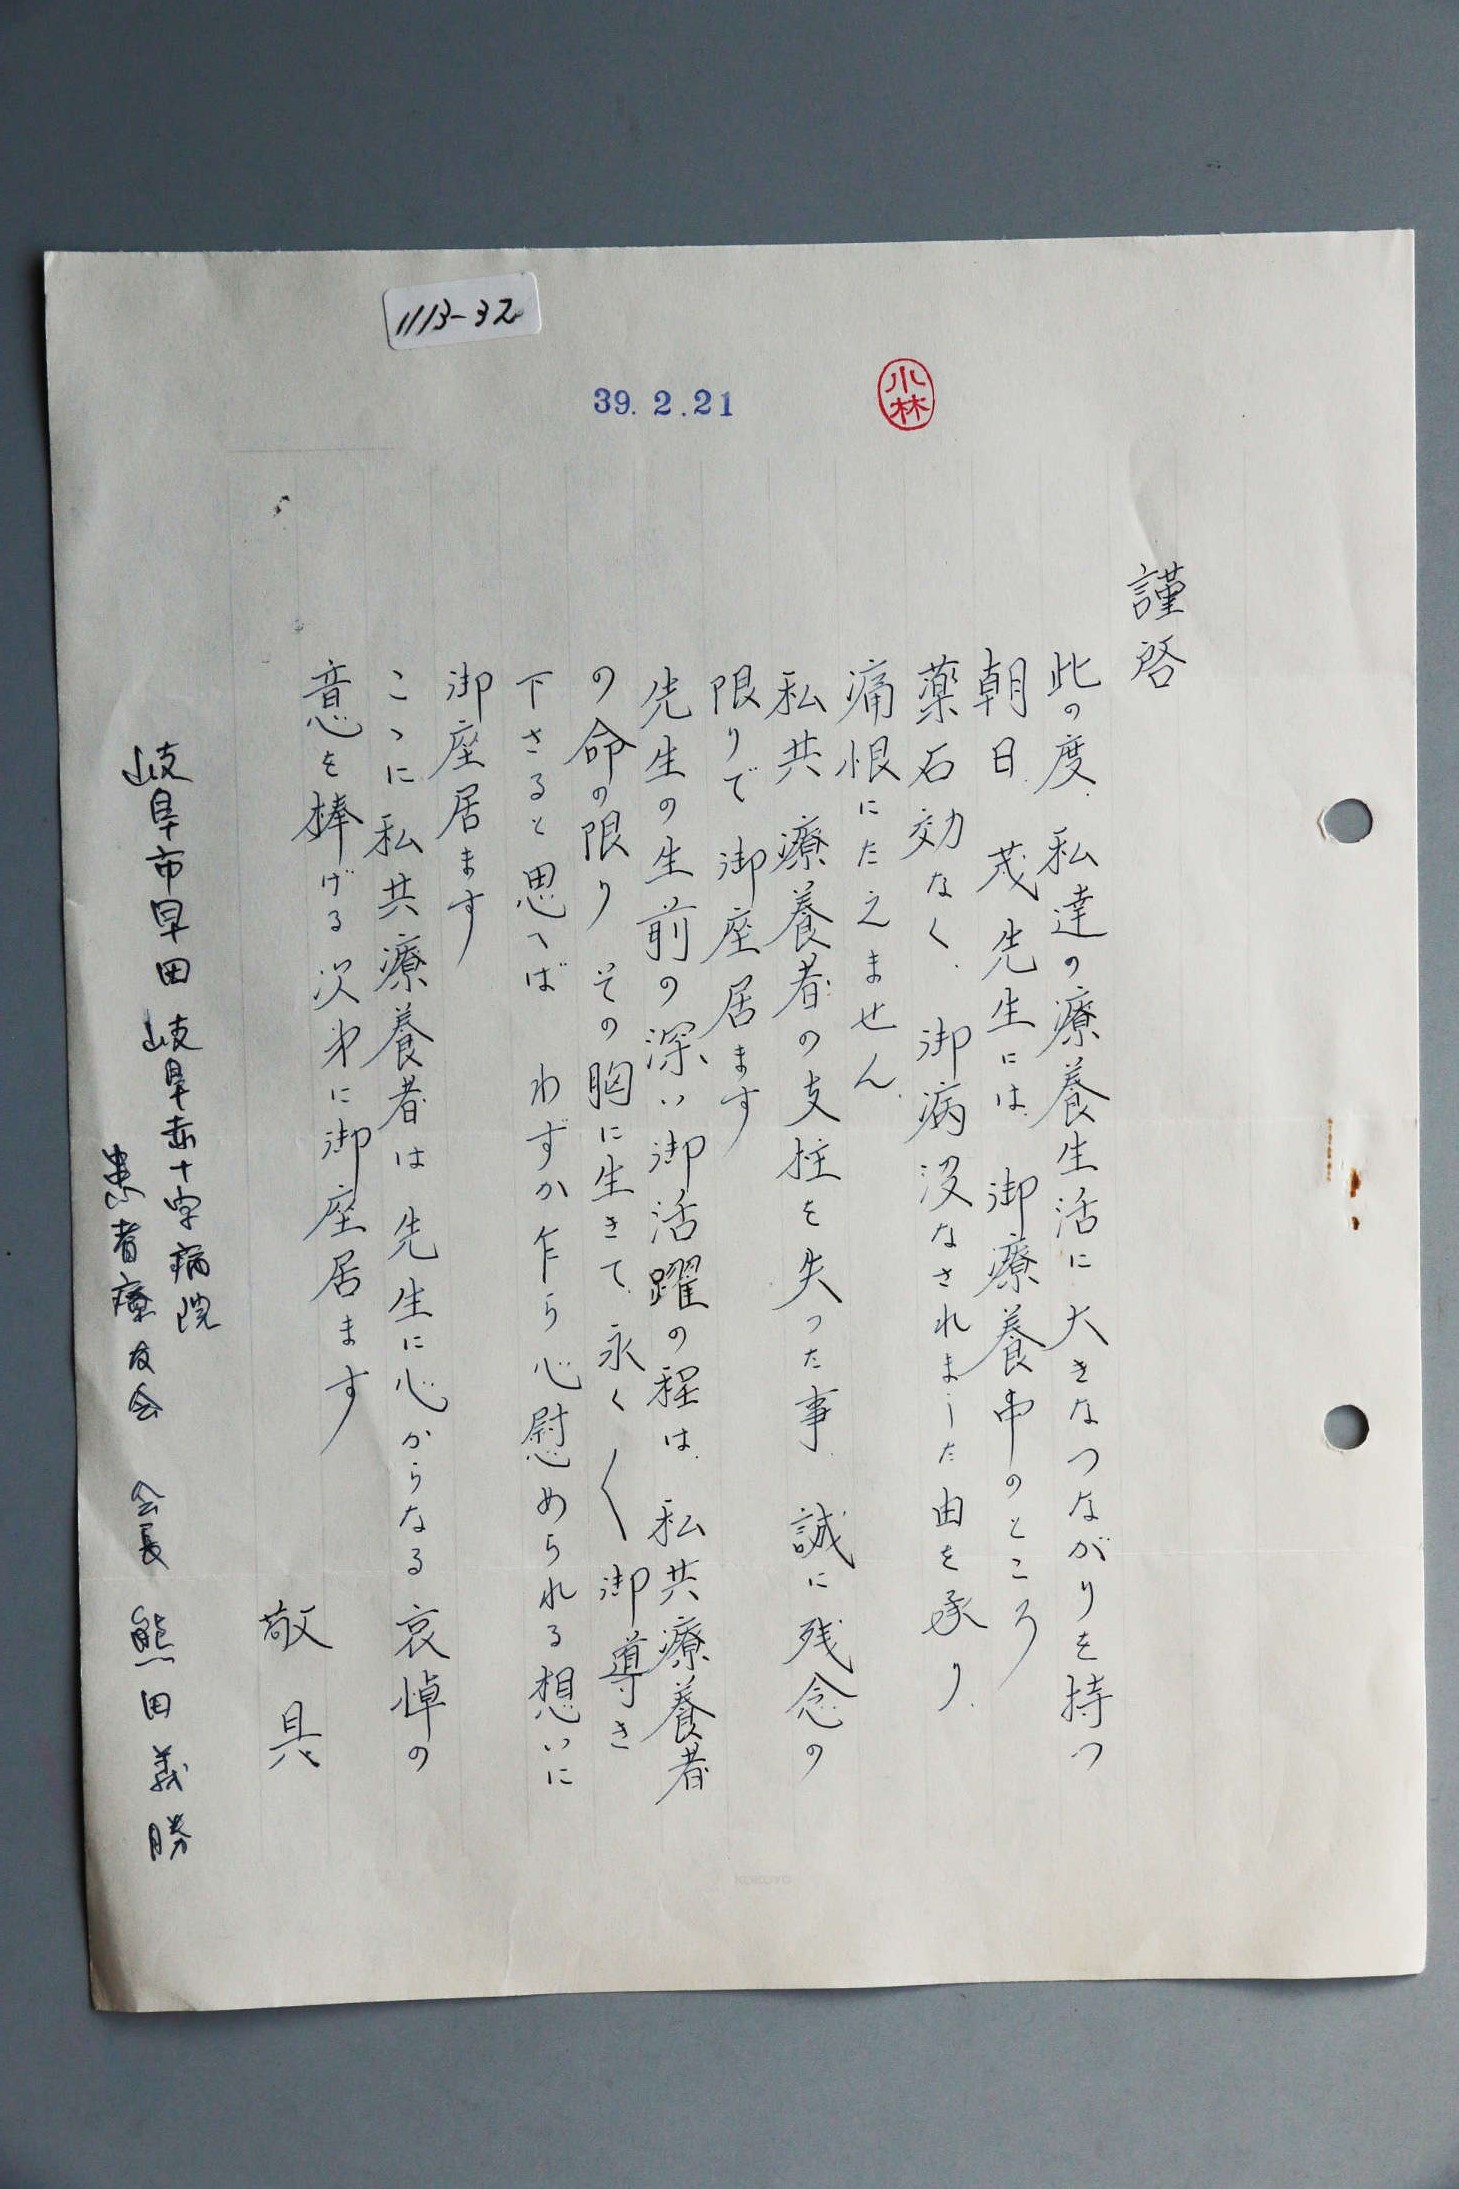 1113-32
39.2.21
小林
謹啓
此の度、私達の療養生活に大きなつながりを持つ
朝日 茂先生には、御療養中のところ
薬石効なく、御病没なされました由を承り、
痛恨にたえません。
私共療養者の支柱を失った事、誠に残念の
限りで御座居ます
先生の生前の深い御活躍の程は、私共療養者
の命の限り その胸に生きて、永く〱御導き
下さると思へば わずか乍ら心慰められる想いに
御座居ます
こゝに私共療養者は 先生に心からなる哀悼の
意を棒げる次第に御座居ます
敬具
岐阜市早田 岐阜赤十字病院
患者療友会 会長 熊田義勝
KOKUYO